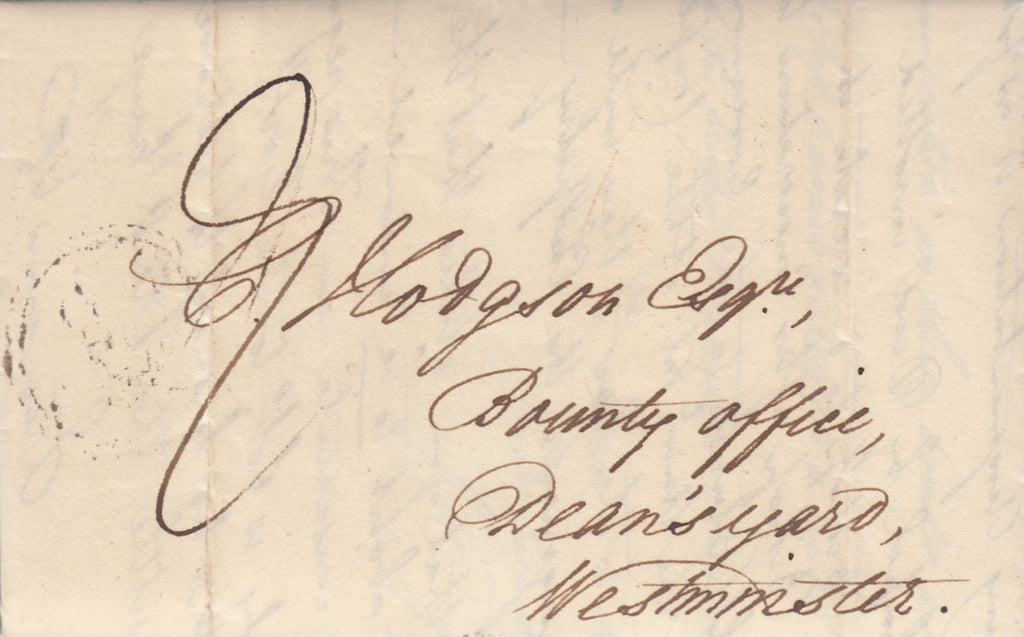 C. Hodgson Esqre,
Bounty office,
Dean's yard,
Westminster.